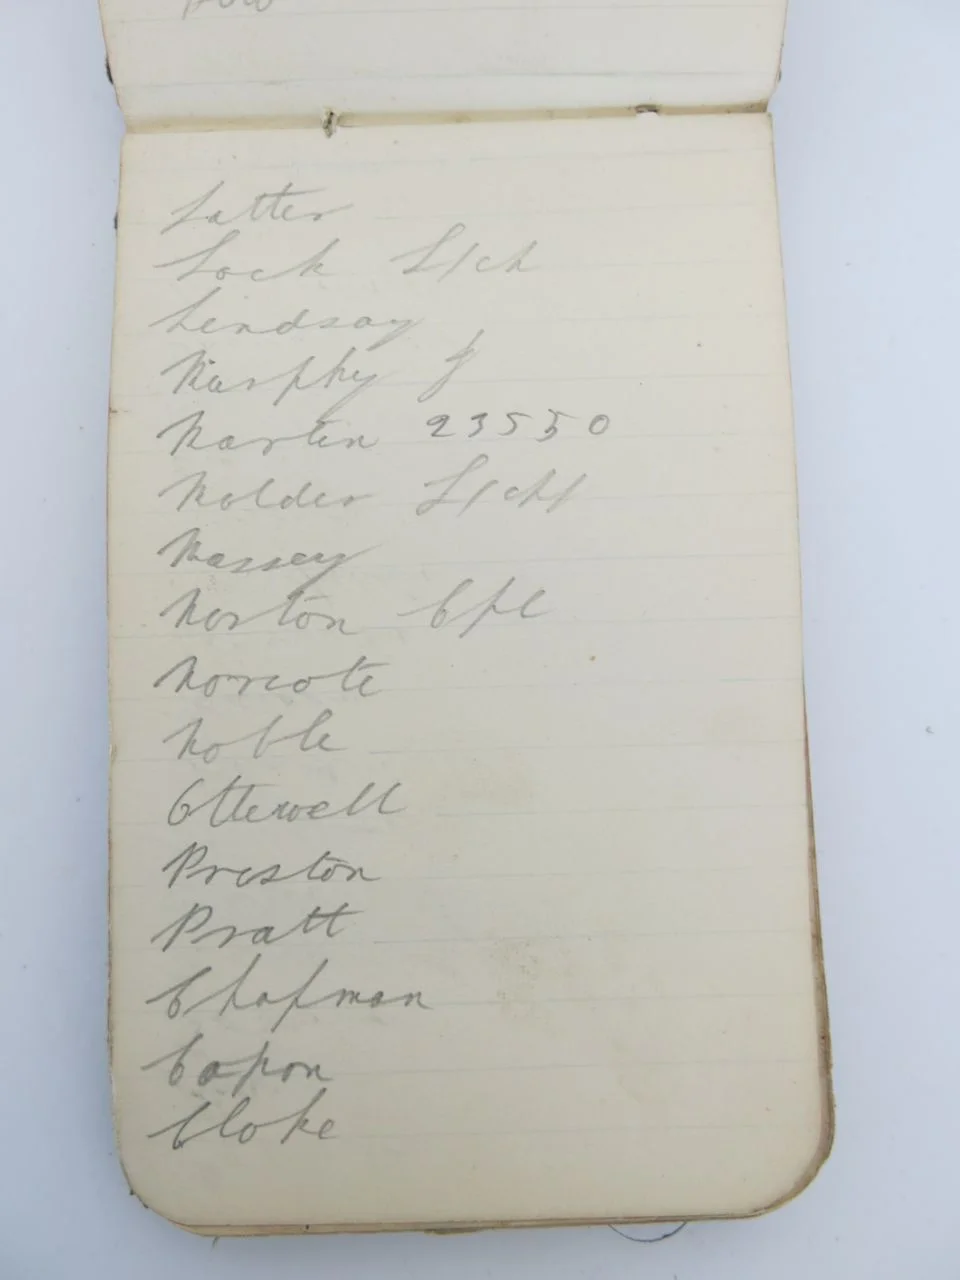 Latter
Lock L/ch
Lindsay
Murphy J
Martin 23550
Molder L/ch/
Massey
Norton Cpl
Norcote
Noble
Ottewell
Preston
Pratt
Chapman
Capon
Cloke